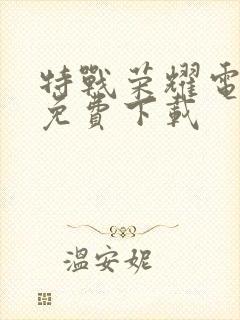 特戰荣耀電
免費下載
溫安妮